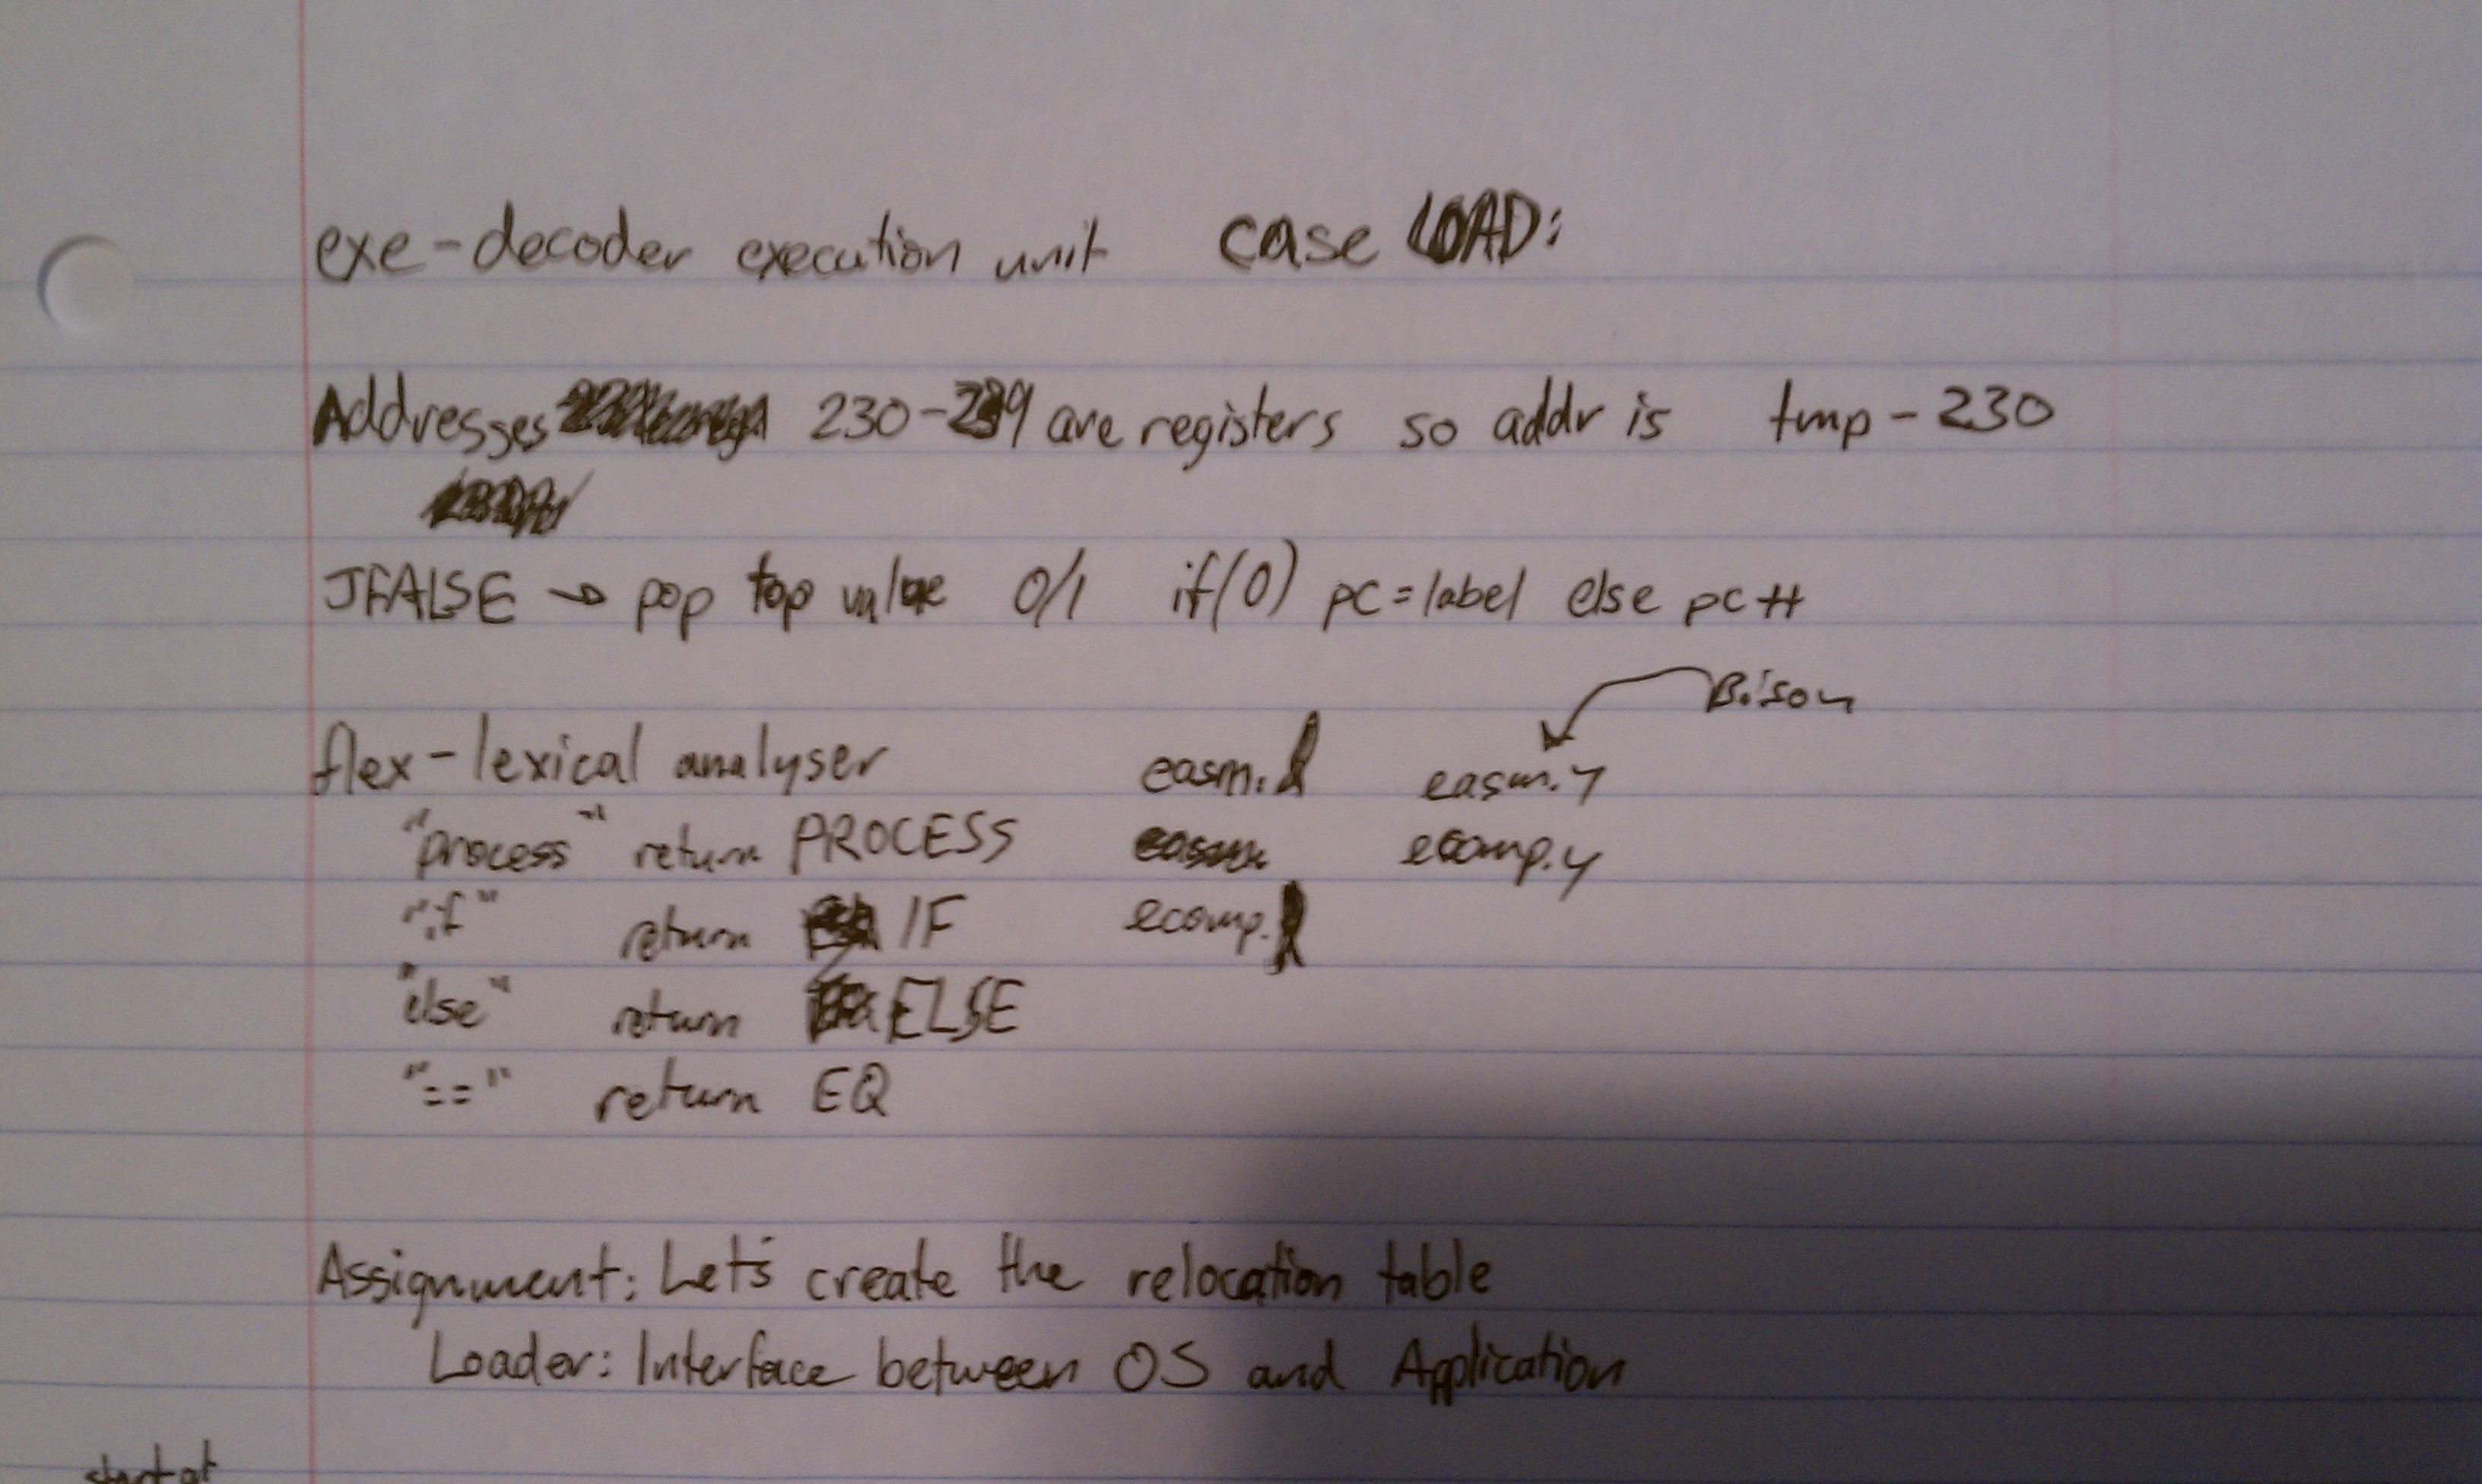 exe-decoder execution unit case LOAD:
Addresses 230-239 are registers so addr is tmp-230
JFALSE → pop top value 0/1 if(0) pc=label else pc++
Bison
flex-lexical analyser easm.l easm.y
"process" return PROCESS ecomp.y
"if" return IF ecomp.l
"else" return ELSE
"==" return EQ
Assignment: Let's create the relocation table
Loader: Interface between OS and Application
start at